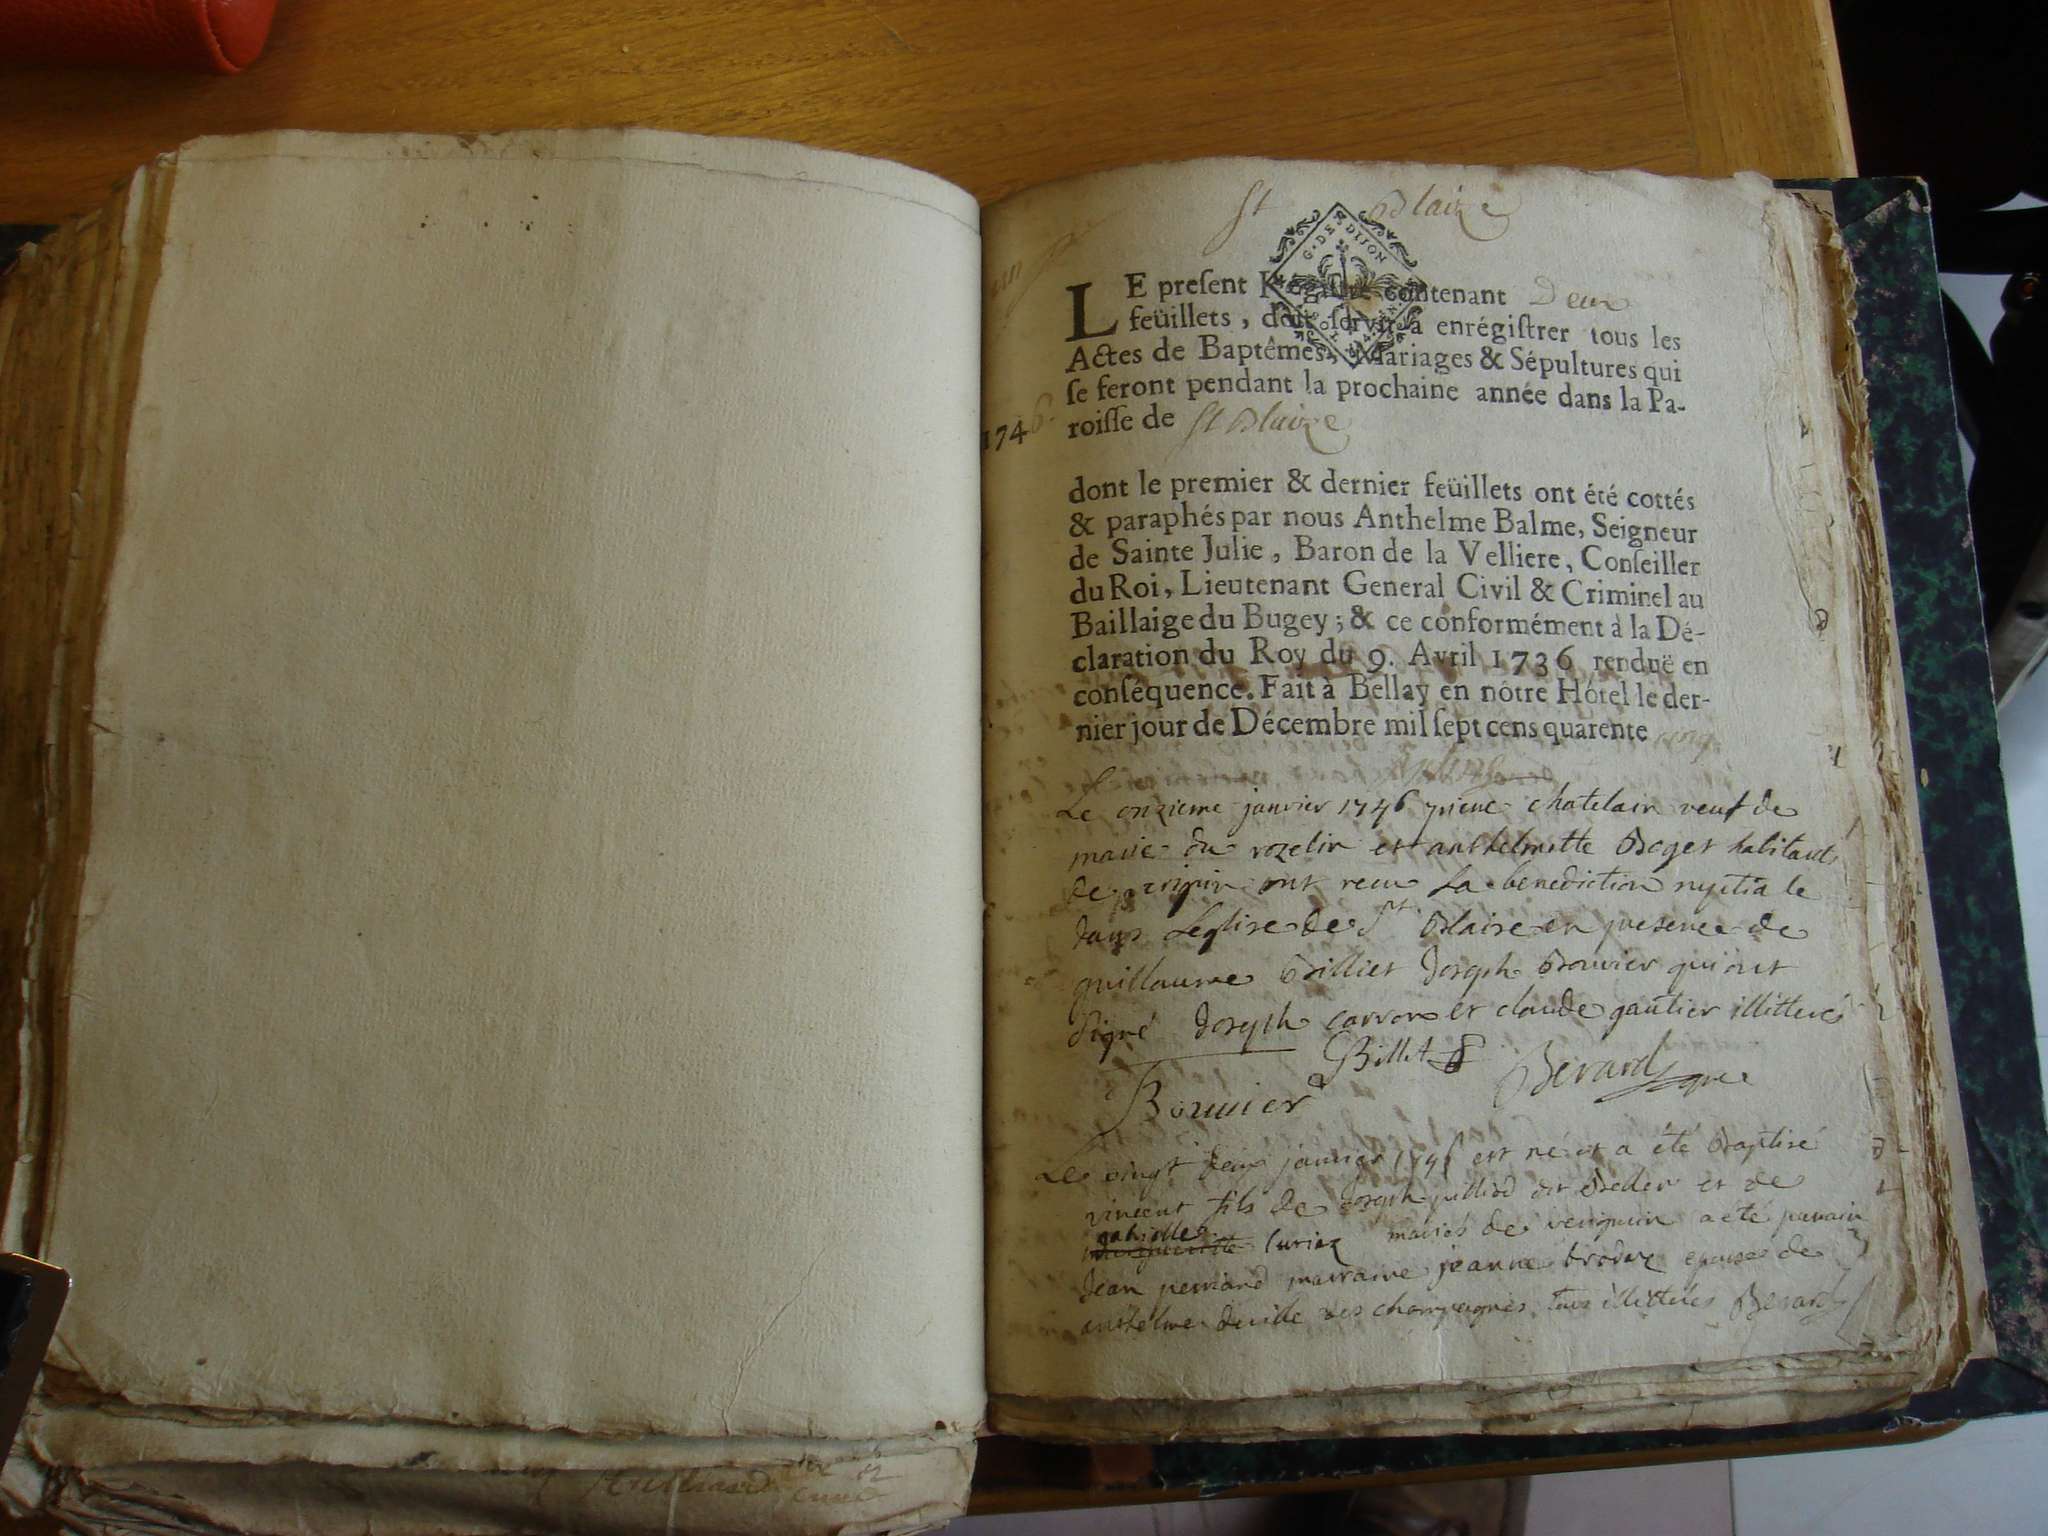 St Blaize
G. DE DIJON
LE preſent Regiſtre contenant Deux
feüillets, doit ſervir à enrégiſtrer tous les
Actes de Baptêmes, Mariages & Sépultures qui
ſe feront pendant la prochaine année dans la Pa-
roiſſe de St Blaize
1746
dont le premier & dernier feüillets ont été cottés
& paraphés par nous Anthelme Balme, Seigneur
de Sainte Julie, Baron de la Velliere, Conſeiller
du Roi, Lieutenant General Civil & Criminel au
Baillaige du Bugey; & ce conformément à la Dé-
claration du Roy du 9. Avril 1736 renduë en
conſéquence. Fait à Bellay en nôtre Hôtel le der-
nier jour de Décembre mil ſept cens quarente cinq
Le onzieme janvier 1746 chatelain veuf de
marie du rozelin et anthelmette Boget habitants
de ont recu la benediction nuptiale
dans Leglise de St Blaise en presence de
guillaume Billiet Joseph Bouvier qui ont
signé Joseph carron et claude gautier illitterés
Billet Berard
Bouvier
Le vingt deux janvier 1746 est né et a été Baptisé
vincent fils de Joseph dit et de
mariés de a été parain
Jean perrand marraine jeanne epouse de
anthelme deville des champagnes tous illitterés Berard